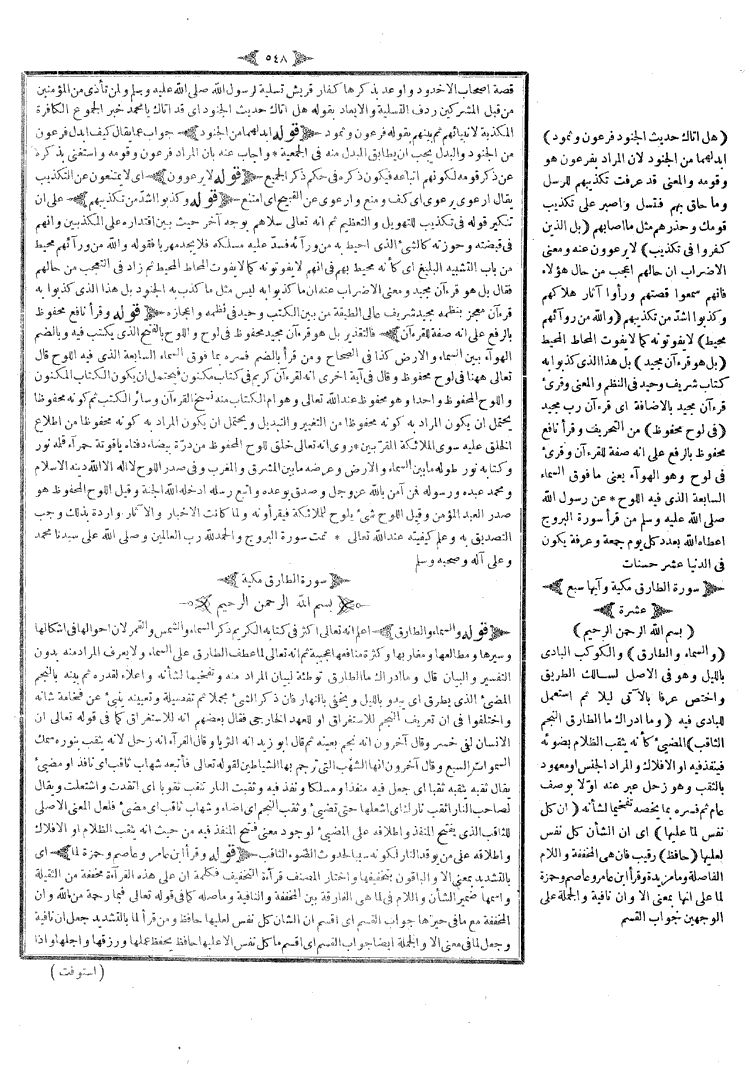 ٥٤٨
قصة اصحاب الاخدود و اوعد بذكرها كفار قريش تسلية لرسول الله صلى الله عليه وسلم ولمن تأذى من المؤمنين
من قبل المشركين ردف التسلية والايعاد بقوله هل اتاك حديث الجنود اى قد اتاك يا محمد خبر الجموع الكافرة
المكذبة لانبيائهم ثم بينهم بقوله فرعون وثمود ﴿ قوله ابدلهما من الجنود ﴾ جواب عما يقال كيف ابدل فرعون
من الجنود والبدل يجب ان يطابق المبدل منه فى الجمعية * واجاب عنه بان المراد فرعون وقومه واستغنى بذكره
عن ذكر قومه لكونهم اتباعه فيكون ذكره فى حكم ذكر الجميع ﴿ قوله لا يرعوون ﴾ اى لا يمتنعون عن التكذيب
يقال ارعوى يرعوى اى كف ومنع وارعوى عن القبيح اى امتنع ﴿ قوله وكذبوا اشد من تكذيبهم ﴾ على ان
تنكير قوله فى تكذيب للتهويل والتعظيم ثم انه تعالى سلاهم بوجه آخر حيث بين اقتداره على المكذبين وانهم
فى قبضته وحوزته كالشئ الذى احيط به من ورآئه فسد عليه مسلكه فلا يجد مهربا فقوله والله من ورآئهم محيط
من باب التشبيه البليغ اى كأنه محيط بهم فى انهم لا يفوتونه كما لا يفوت المحاط المحيط ثم زاد فى التعجب من حالهم
فقال بل هو قرءآن مجيد ومعنى الاضراب عنه ان ما كذبوا به ليس مثل ما كذب به الجنود بل هذا الذى كذبوا به
قرءآن معجز بنظمه مجيد شريف عالى الطبقة من بين الكتب وحيد فى نظمه واعجازه ﴿ قوله وقرأ نافع محفوظ
بالرفع على انه صفة للقرءآن ﴾ فالتقدير بل هو قرءآن مجيد محفوظ فى لوح واللوح بالفتح الذى يكتب فيه وبالضم
الهوآء بين السماء والارض كذا فى الصحاح ومن قرأ بالضم فسره بما فوق السماء السابعة الذى فيه اللوح قال
تعالى ههنا فى لوح محفوظ وقال فى آية اخرى انه لقرءآن كريم فى كتاب مكنون فيحتمل ان يكون الكتاب المكنون
واللوح المحفوظ واحدا وهو محفوظ عند الله تعالى وهو ام الكتاب منه نسخ القرءآن وسائر الكتب ثم كونه محفوظا
يحتمل ان يكون المراد به كونه محفوظا من التغيير والتبديل ويحتمل ان يكون المراد به كونه محفوظا من اطلاع
الخلق عليه سوى الملائكة المقربين * روى انه تعالى خلق للوح المحفوظ من درة بيضاء دفتاه ياقوتة حمرآء قلمه نور
وكتابه نور طوله ما بين السماء والارض وعرضه ما بين المشرق والمغرب وفى صدر اللوح لا اله الا الله دينه الاسلام
ومحمد عبده ورسوله فمن آمن بالله عز وجل وصدق بوعده واتبع رسله ادخله الله الجنة وقيل اللوح المحفوظ هو
صدر العبد المؤمن وقيل اللوح شئ يلوح للملائكة فيقرأونه ولما كانت الاخبار والآثار واردة بذلك وجب
التصديق به وعلم كيفيته عند الله تعالى * تمت سورة البروج والحمد لله رب العالمين وصلى الله على سيدنا محمد
وعلى آله وصحبه وسلم
﴿ سورة الطارق مكية ﴾
﴿ بسم الله الرحمن الرحيم ﴾
﴿ قوله والسماء والطارق ﴾ اعلم انه تعالى اكثر فى كتابه الكريم ذكر السماء والشمس والقمر لان احوالها فى اشكالها
وسيرها ومطالعها ومغاربها وكثرة منافعها عجيبة ثم انه تعالى لما عطف الطارق على السماء ولا يعرف المراد منه بدون
التفسير والبيان قال وما ادراك ما الطارق توطئة لبيان المراد منه وتفخيما لشأنه واعلاء لقدره ثم بينه بالنجم
المضئ الذى يطرق اى يبدو بالليل ويختفى بالنهار فان ذكر الشئ مجملا ثم تفصيله وتعيينه ينبئ عن فخامة شانه
واختلفوا فى ان تعريف النجم للاستغراق او للعهد الخارجى فقال بعضهم انه للاستغراق كما فى قوله تعالى ان
الانسان لفى خسر وقال آخرون انه نجم بعينه ثم قال ابو زيد انه الثريا وقال الفرآء انه زحل لانه يثقب بنوره سمك
السموات السبع وقال آخرون انها الشهب التى ترجم بها الشياطين لقوله تعالى فأتبعه شهاب ثاقب اى نافذ او مضئ
يقال ثقبه يثقبه ثقبا اى جعل فيه منفذا ومسلكا ونفذ فيه وثقبت النار تثقب ثقوبا اى اتقدت واشتعلت ويقال
لصاحب النار اثقب نارك اى اشعلها حتى تضئ وثقب النجم اى اضاء وشهاب ثاقب اى مضئ فلعل المعنى الاصلى
للثاقب الذى يفتح المنفذ واطلاقه على المضئ لوجود معنى فتح المنفذ فيه من حيث انه يثقب الظلام او الافلاك
واطلاقه على من يوقد النار لكونه سببا لحدوث الضوء الثاقب ﴿ قوله وقرأ ابن عامر وعاصم وحمزة لما ﴾ اى
بالتشديد بمعنى الا والباقون بتخفيفها واختار المصنف قرآءة التخفيف فكلمة ان على هذه القرآءة مخففة من الثقيلة
واسمها ضمير الشأن واللام فى لما هى الفارقة بين المخففة والنافية وما صلة كما فى قوله تعالى فبما رحمة من الله وان
المخففة مع ما فى حيزها جواب القسم اى اقسم ان الشان كل نفس لعليها حافظ ومن قرأ لما بالتشديد جعل ان نافية
وجعل لما فى معنى الا والجملة ايضا جواب القسم اى اقسم ما كل نفس الا عليها حافظ يحفظ عملها ورزقها واجلها واذا
( استوفت )
( هل اتاك حديث الجنود فرعون وثمود )
ابدلهما من الجنود لان المراد بفرعون هو
وقومه والمعنى قد عرفت تكذيبهم للرسل
وما حاق بهم فتسل واصبر على تكذيب
قومك وحذرهم مثل ما اصابهم ( بل الذين
كفروا فى تكذيب ) لا يرعوون عنه ومعنى
الاضراب ان حالهم اعجب من حال هؤلاء
فانهم سمعوا قصتهم ورأوا آثار هلاكهم
وكذبوا اشد من تكذيبهم ( والله من ورآئهم
محيط ) لا يفوتونه كما لا يفوت المحاط المحيط
( بل هو قرءآن مجيد ) بل هذا الذى كذبوا به
كتاب شريف وحيد فى النظم والمعنى وقرئ
قرءآن مجيد بالاضافة اى قرءآن رب مجيد
( فى لوح محفوظ ) من التحريف وقرأ نافع
محفوظ بالرفع على انه صفة للقرءآن وقرئ
فى لوح وهو الهوآء يعنى ما فوق السماء
السابعة الذى فيه اللوح * عن رسول الله
صلى الله عليه وسلم من قرأ سورة البروج
اعطاه الله بعدد كل يوم جمعة وعرفة يكون
فى الدنيا عشر حسنات
﴿ سورة الطارق مكية وآيها سبع
عشرة ﴾
( بسم الله الرحمن الرحيم )
( والسماء والطارق ) والكوكب البادى
بالليل وهو فى الاصل لسالك الطريق
واختص عرفا بالآتى ليلا ثم استعمل
للبادى فيه ( وما ادراك ما الطارق النجم
الثاقب ) المضئ كأنه يثقب الظلام بضوئه
فينفذ فيه او الافلاك والمراد الجنس او معهود
بالثقب وهو زحل عبر عنه اولا بوصف
عام ثم فسره بما يخصه تفخيما لشأنه ( ان كل
نفس لما عليها ) اى ان الشأن كل نفس
لعليها ( حافظ ) رقيب فان هى المخففة واللام
الفاصلة وما مزيدة وقرأ ابن عامر وعاصم وحمزة
لما على انها بمعنى الا وان نافية والجملة على
الوجهين جواب القسم